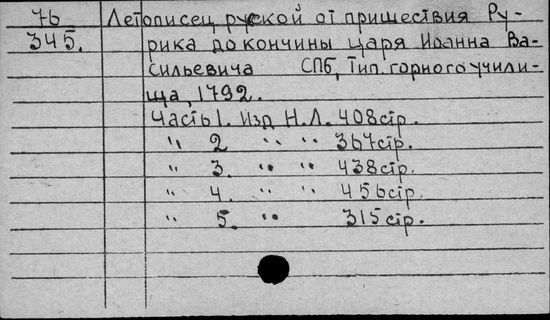 76 Летописец руской от пришествия Ру-
345. рика до кончины царя Иоанна Ва-
сильевича СПб, Тип. горного учили-
ща, 1792.
Часть 1. Изд Н.Л. 408 стр.
" 2 " " 367 стр.
" 3. " " 438 стр.
" 4. " " 456 стр.
" 5. " 315 стр.